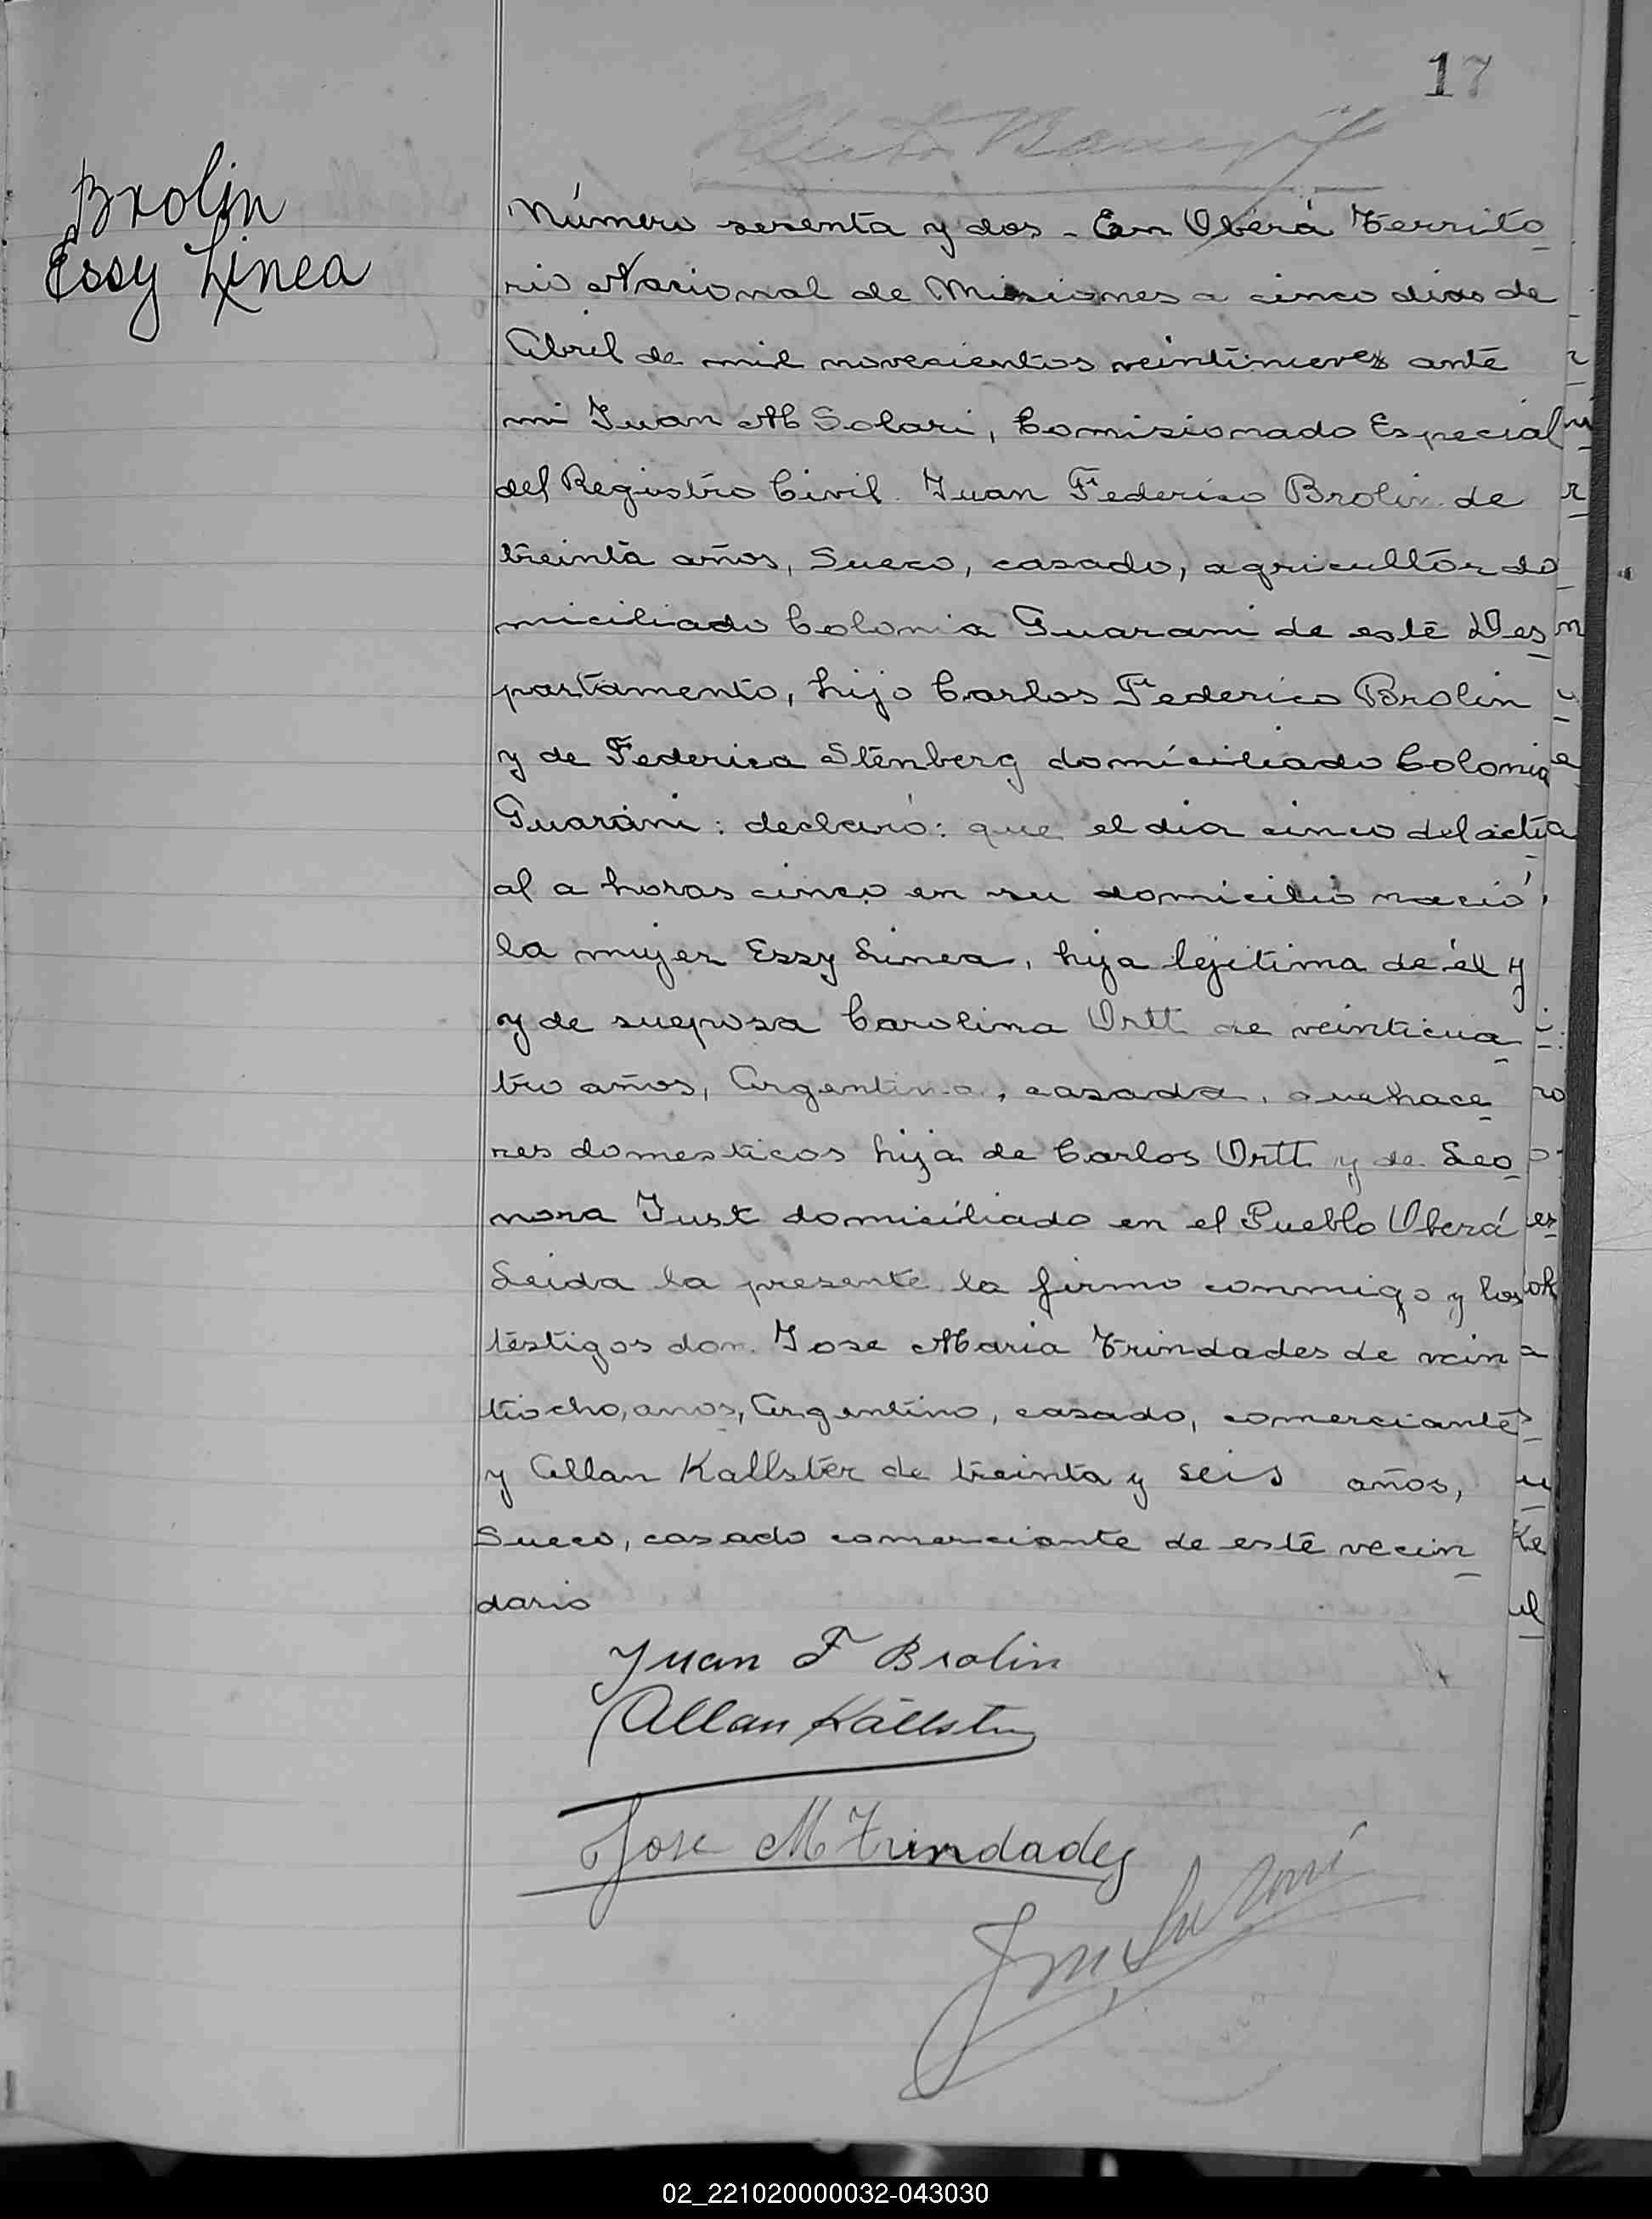 17
Brolin
Essy Linea
Número sesenta y dos - En Oberá Territo
rio Nacional de Misiones a cinco dias de
Abril de mil novecientos veintinueve ante
mi Juan M Solari, Comisionado Especial
del Registro Civil. Juan Federico Brolin de
treinta años, Sueco, casado, agricultor do
miciliado Colonia Guarani de este De
partamento, hijo Carlos Federico Brolin
y de Federica Stenberg domiciliado Colonia
Guaráni: declaró: que el dia cinco del actu
al a horas cinco en su domicilio nació
la mujer Essy Linea, hija lejitima de él y
y de sueposa Carolina Ortt de veinticua
tro años, Argentina, casada, quehace
res domesticos hija de Carlos Ortt y de Leo
nora Just domiciliado en el Pueblo Oberá
Leida la presente la firmo conmigo y los
testigos don Jose Maria Trindades de vein
tiocho, anos, Argentino, casado, comerciante
y Allan Kallster de treinta y seis años,
Sueco, casado comerciante de este vecin
dario
Juan F Brolin
Allan Källsten
Jose M Trindades
02_221020000032-043030